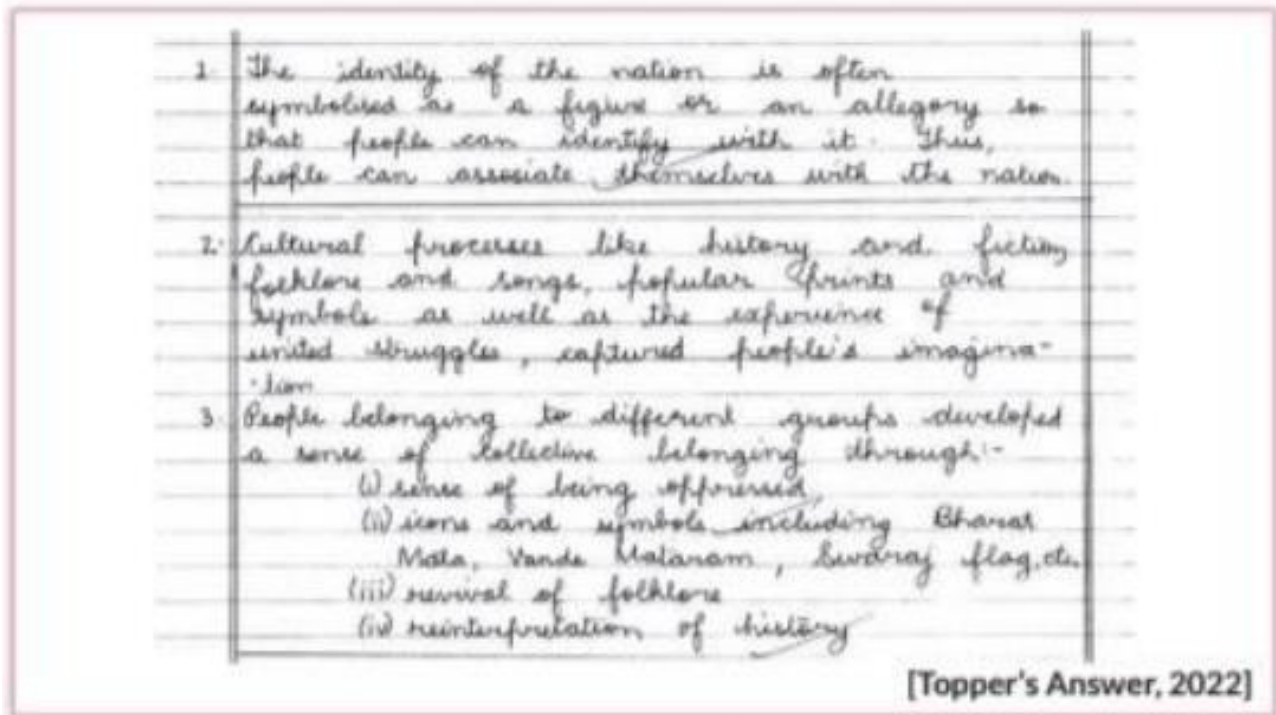 1. The identity of the nation is often
symbolised as a figure or an allegory so
that people can identify with it. Thus,
people can associate themselves with the nation.
2. Cultural processes like history and fiction,
folklore and songs, popular prints and
symbols as well as the experience of
united struggles, captured people's imagina-
-tion
3. People belonging to different groups developed
a sense of collective belonging through:-
(i) sense of being oppressed,
(ii) icons and symbols including Bharat
Mata, Vande Mataram, Swaraj flag, etc.
(iii) revival of folklore
(iv) reinterpretation of history
[Topper's Answer, 2022]